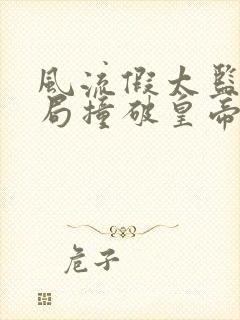 风流假太监
局撞破皇帝
危子